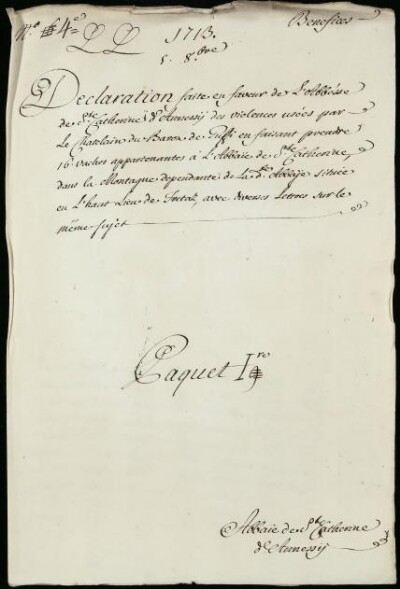 N.o 4.e
Benefices
1713.
5. 8.bre
Declaration faite en faveur de L'Abbésse
de S.te Catherine d'Annessÿ des violences usées par
Le Chatelain du Baron de en faisant prendre
16. vaches appartenantes à L'Abbaie de S.te Catherine,
dans la Montagne dependante de La d.te Abbaÿe située
en L'haut Lieu de avec diverses Lettres sur le
même sujet
Paquet I.re
Abbaie de S.te Catherine
d'Annessÿ